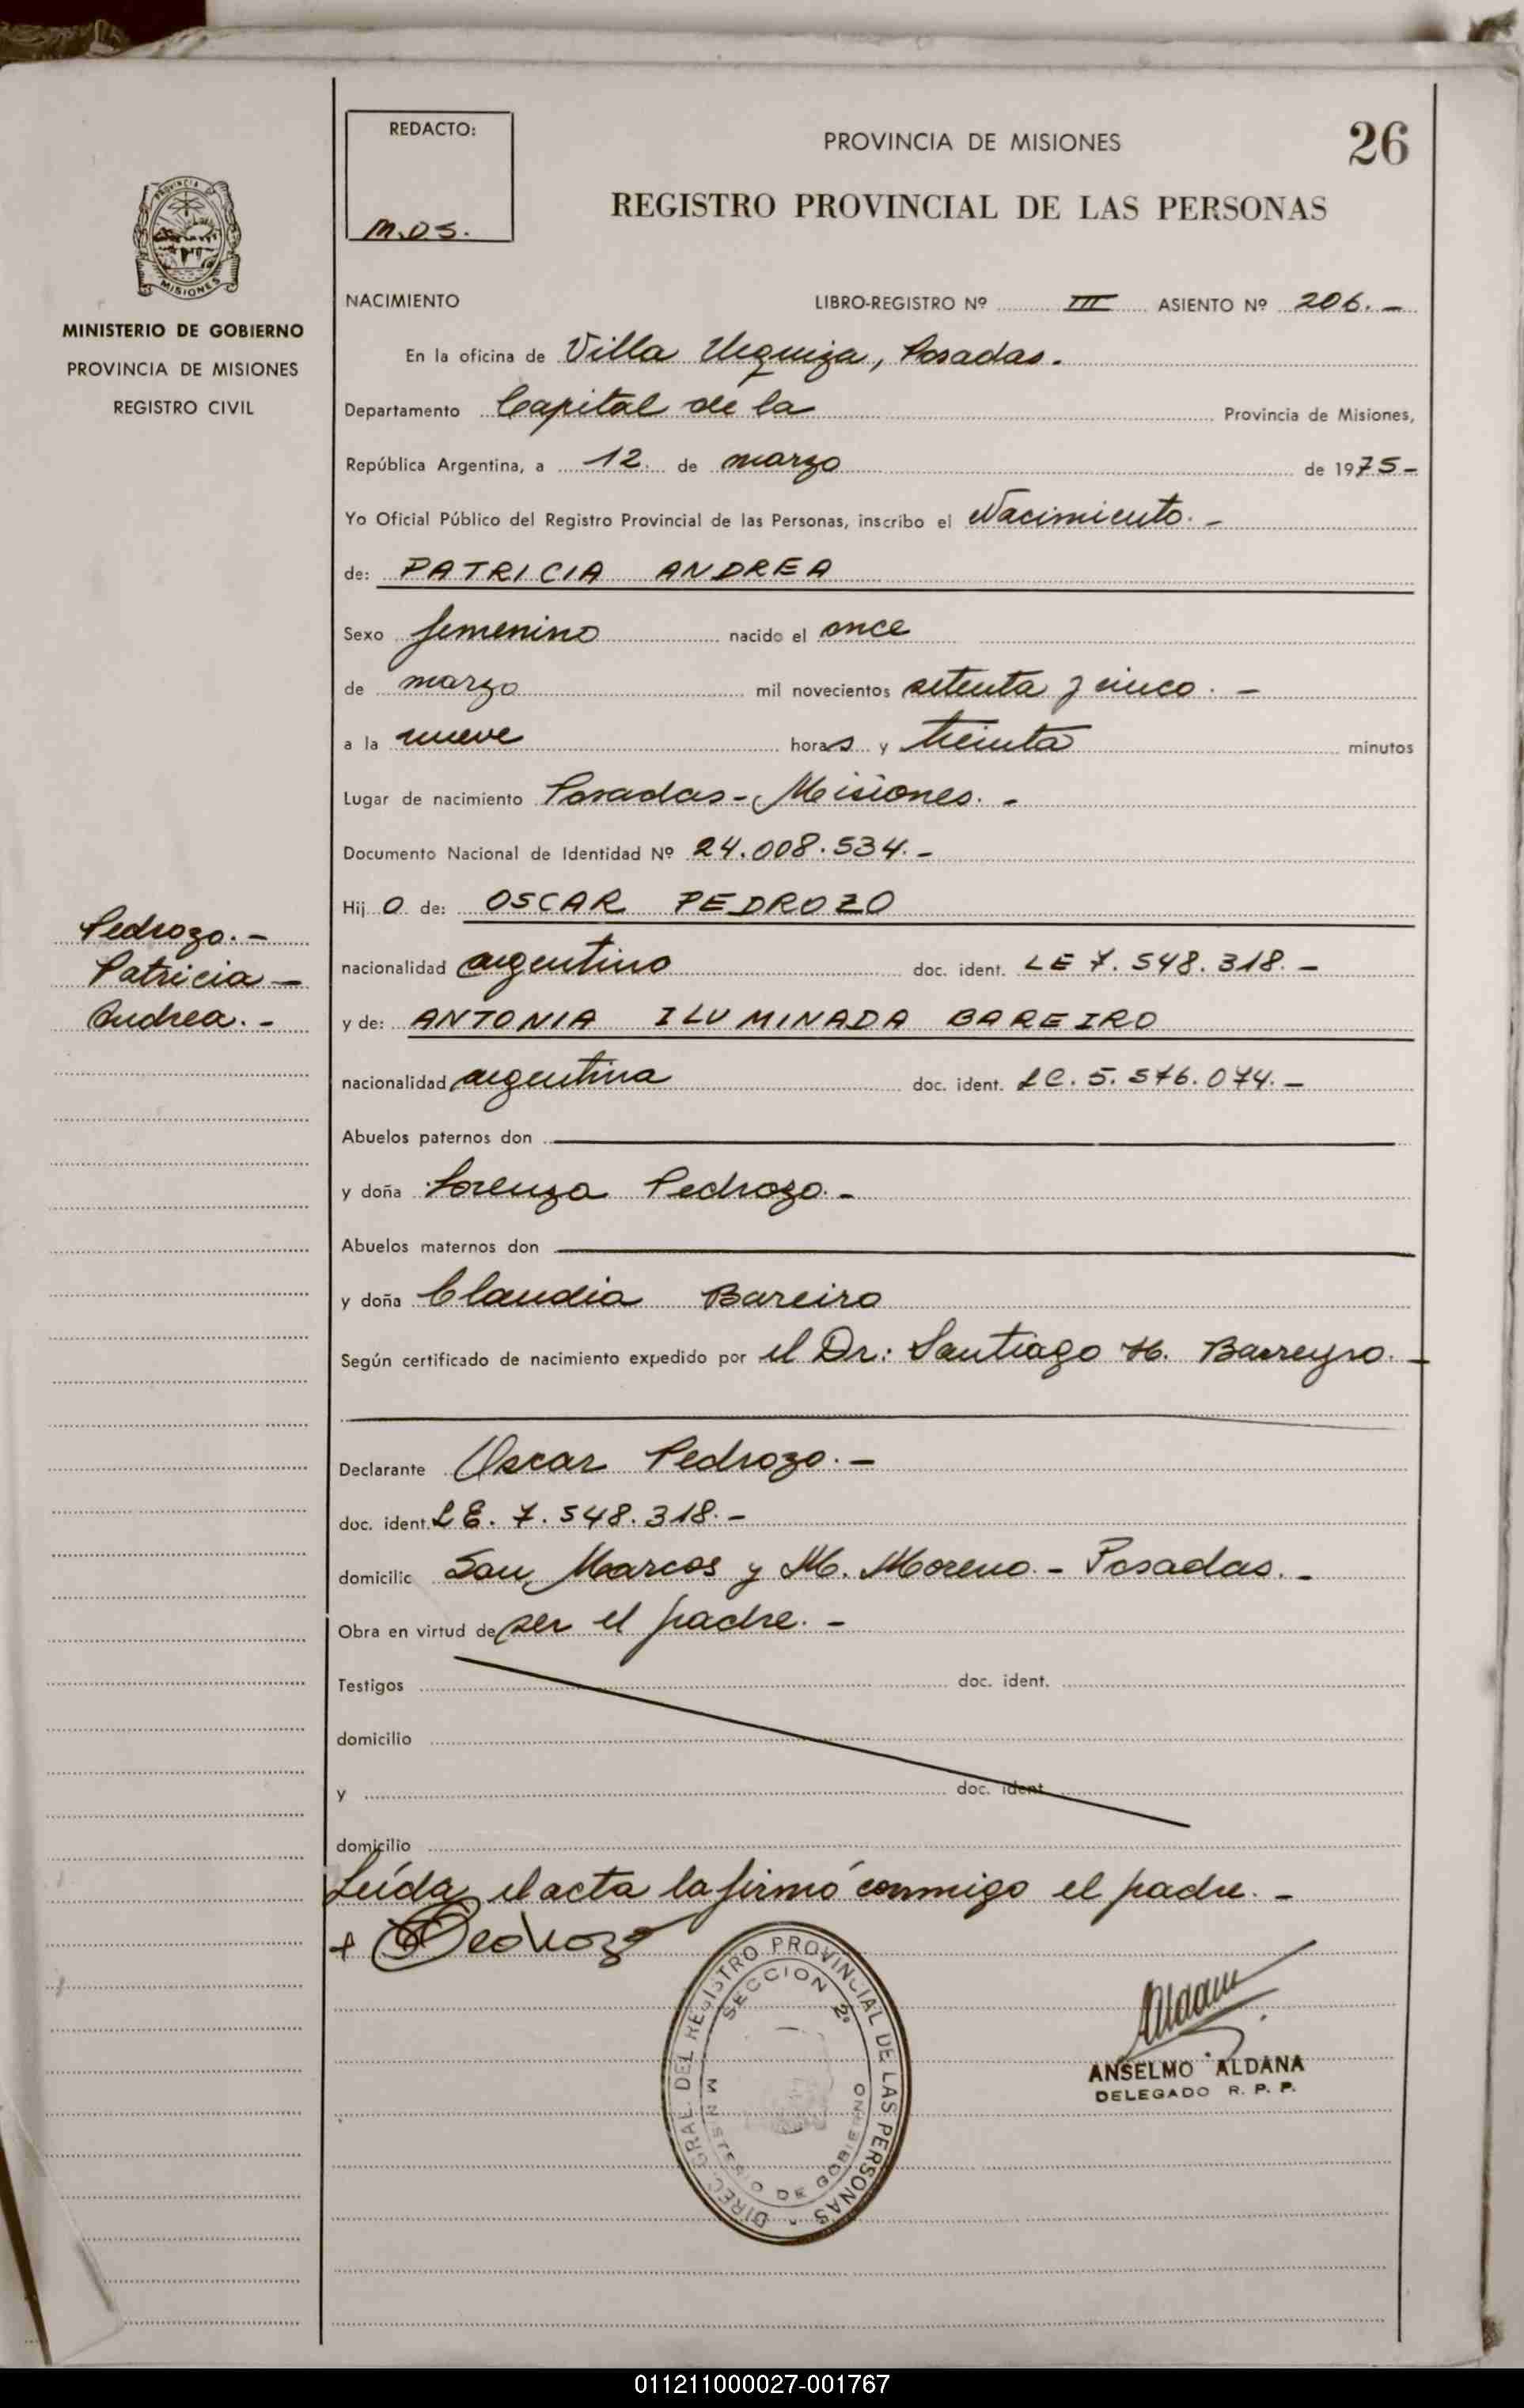 REDACTO:
M.D.S.
PROVINCIA DE MISIONES
26
REGISTRO PROVINCIAL DE LAS PERSONAS
PROVINCIA DE
MISIONES
MINISTERIO DE GOBIERNO
PROVINCIA DE MISIONES
REGISTRO CIVIL
NACIMIENTO LIBRO-REGISTRO Nº III ASIENTO Nº 206.-
En la oficina de Villa Urquiza, Posadas.
Departamento Capital de la Provincia de Misiones,
República Argentina, a 12. de marzo de 1975-
Yo Oficial Público del Registro Provincial de las Personas, inscribo el Nacimiento.-
de: PATRICIA ANDREA
Sexo femenino nacido el once
de marzo mil novecientos setenta y cinco.-
a la nueve horas y treinta minutos
Lugar de nacimiento Posadas-Misiones.-
Documento Nacional de Identidad Nº 24.008.534.-
Hij O de: OSCAR PEDROZO
Pedrozo.-
Patricia-
Andrea.-
nacionalidad argentino doc. ident. LE 7.548.318.-
y de: ANTONIA ILUMINADA BAREIRO
nacionalidad argentina doc. ident. LC. 5.576.074.-
Abuelos paternos don
y doña Lorenza Pedrozo.-
Abuelos maternos don
y doña Claudia Bareiro
Según certificado de nacimiento expedido por el Dr: Santiago H. Barreyro.-
Declarante Oscar Pedrozo.-
doc. ident. LE. 7.548.318.-
domicilio San Marcos y M. Moreno.- Posadas.-
Obra en virtud de ser el padre.-
Testigos doc. ident.
domicilio
y doc. ident
domicilio
Leída el acta la firmó conmigo el padre.-
+ OPedrozo
DIREC. GRAL. DEL REGISTRO PROVINCIAL DE LAS PERSONAS -
SECCION 2º
MINISTERIO DE GOBIERNO
Aldana
ANSELMO ALDANA
DELEGADO R. P. P.
011211000027-001767